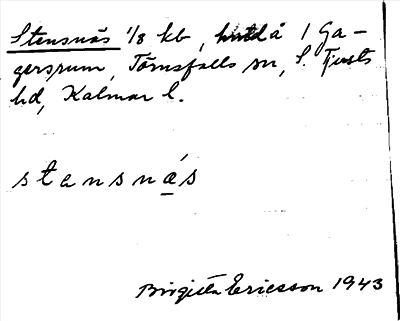 Stensnäs 1/8 kb, å 1 Ga-
gersrum, Törnsfalls sn, S. Tjusts
hd, Kalmar l.
stensnás
Birgitta Ericsson 1943